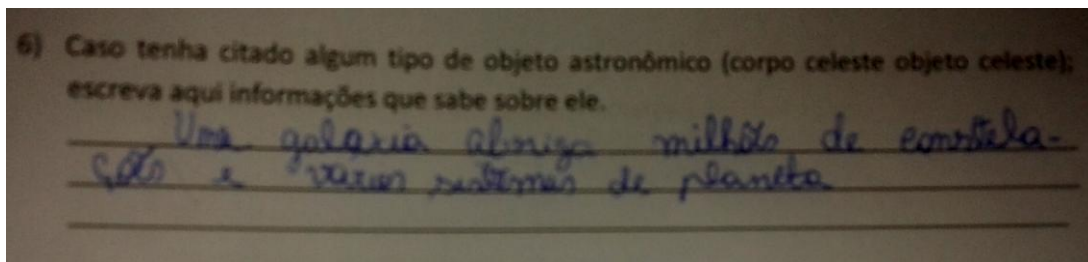 6) Caso tenha citado algum tipo de objeto astronômico (corpo celeste objeto celeste);
escreva aqui informações que sabe sobre ele.
Uma galaxia abriga milhões de constela-
ções e varios sistemas de planeta